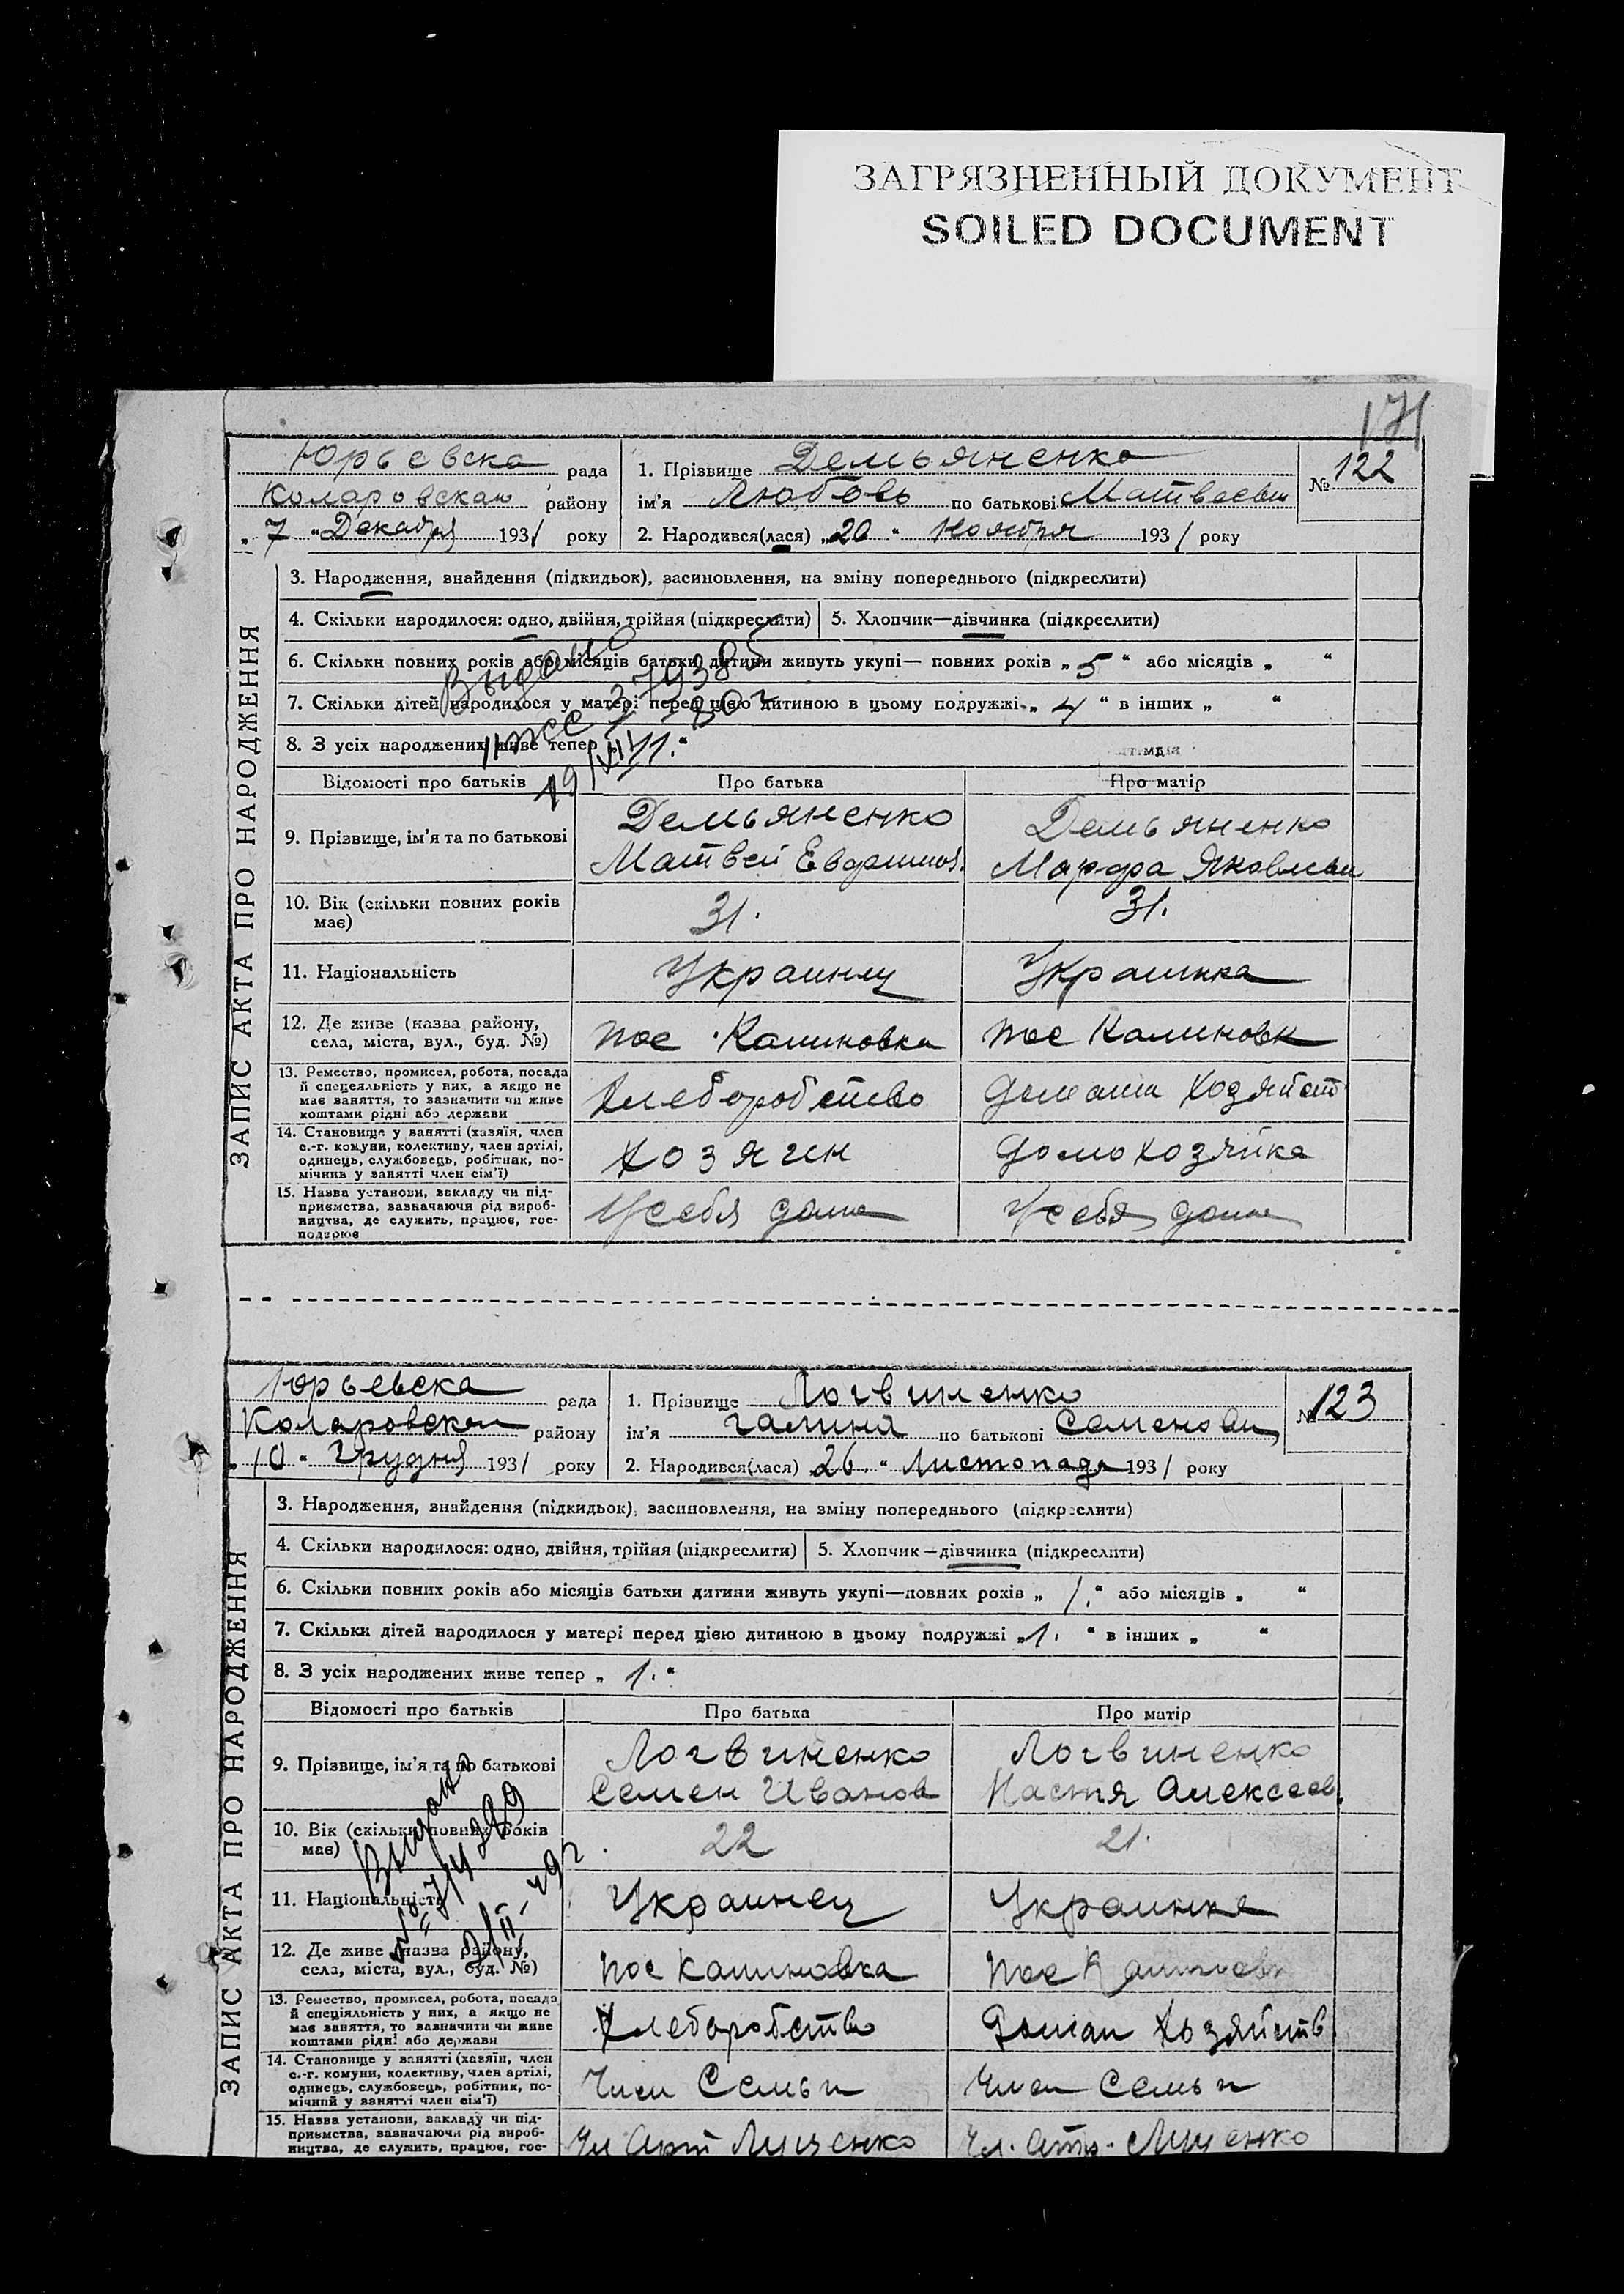 ЗАГРЯЗНЕННЫЙ ДОКУМЕНТ
SOILED DOCUMENT
171
Юрьевска рада
Коларовского району
„7“ Декабря 1931 року
1. Прізвище Демьяненко
ім'я Любовь по батькові Матвеевн
2. Народився(лася) „20“ Ноября 1931 року
№ 122
ЗАПИС АКТА ПРО НАРОДЖЕННЯ
3. Народження, знайдення (підкидьок), засиновлення, на зміну попереднього (підкреслити)
4. Скільки народилося: одно, двійня, трійня (підкреслити)
5. Хлопчик—дівчинка (підкреслити)
6. Скільки повних років або місяців батьки дитини живуть укупі— повних років „5“ або місяців „ “
7. Скільки дітей народилося у матері перед цією дитиною в цьому подружжі „4“ в інших „ “
8. З усіх народжених живе тепер
Выдано
Відомості про батьків
Про батька
Про матір
9. Прізвище, ім'я та по батькові
Демьяненко
Матвей
Демьяненко
Марфа Яковлевн
10. Вік (скільки повних років
має)
31.
31.
11. Національність
Украинец
Украинка
12. Де живе (назва району,
села, міста, вул., буд. №)
пос Калиновка
пос Калиновк
13. Ремество, промисел, робота, посада
й спецеяльність у них, а якщо не
має заняття, то зазначити чи живе
коштами рідні або держави
Хлеборобство
Домаш Хозяйст
14. Становище у занятті (хазяїн, член
с.-г. комуни, колективу, член артілі,
одинець, службовець, робітник, по-
мічник у занятті член сім'ї)
Хозяин
Домохозяйка
15. Назва установи, закладу чи під-
приємства, зазначаючи рід вироб-
ництва, де служить, працює, гос-
подарює
У себя дома
У себя дома
Юрьевска рада
Коларовского району
„10“ Грудня 1931 року
1. Прізвище Логвиненко
ім'я Галина по батькові Семеновн
2. Народився(лася) „26.“ Листопада 1931 року
№ 123
ЗАПИС АКТА ПРО НАРОДЖЕННЯ
3. Народження, знайдення (підкидьок), засиновлення, на зміну попереднього (підкреслити)
4. Скільки народилося: одно, двійня, трійня (підкреслити)
5. Хлопчик—дівчинка (підкреслити)
6. Скільки повних років або місяців батьки дитини живуть укупі—повних років „1.“ або місяців „ “
7. Скільки дітей народилося у матері перед цією дитиною в цьому подружжі „1.“ в інших „ “
8. З усіх народжених живе тепер „1.“
Відомості про батьків
Про батька
Про матір
9. Прізвище, ім'я та по батькові
Логвиненко
Семен Иванов
Логвиненко
Настя Алексеев.
Выдано
10. Вік (скільки повних років
має)
22
21.
11. Національність
Украинец
Украинка
12. Де живе (назва району,
села, міста, вул., буд. №)
пос Калиновка
пос Калиновк
13. Ремество, промисел, робота, посада
й спеціяльність у них, а якщо не
має заняття, то зазначити чи живе
коштами рідні або держави
Хлеборобство
Домаш Хозяйств
14. Становище у занятті (хазяїн, член
с.-г. комуни, колективу, член артілі,
одинець, службовець, робітник, по-
мічний у занятті член сім'ї)
Член Семьи
Член Семьи
15. Назва установи, закладу чи під-
приємства, зазначаючи рід вироб-
ництва, де служить, працює, гос-
Чл Арт Луценко
Чл. Луценко